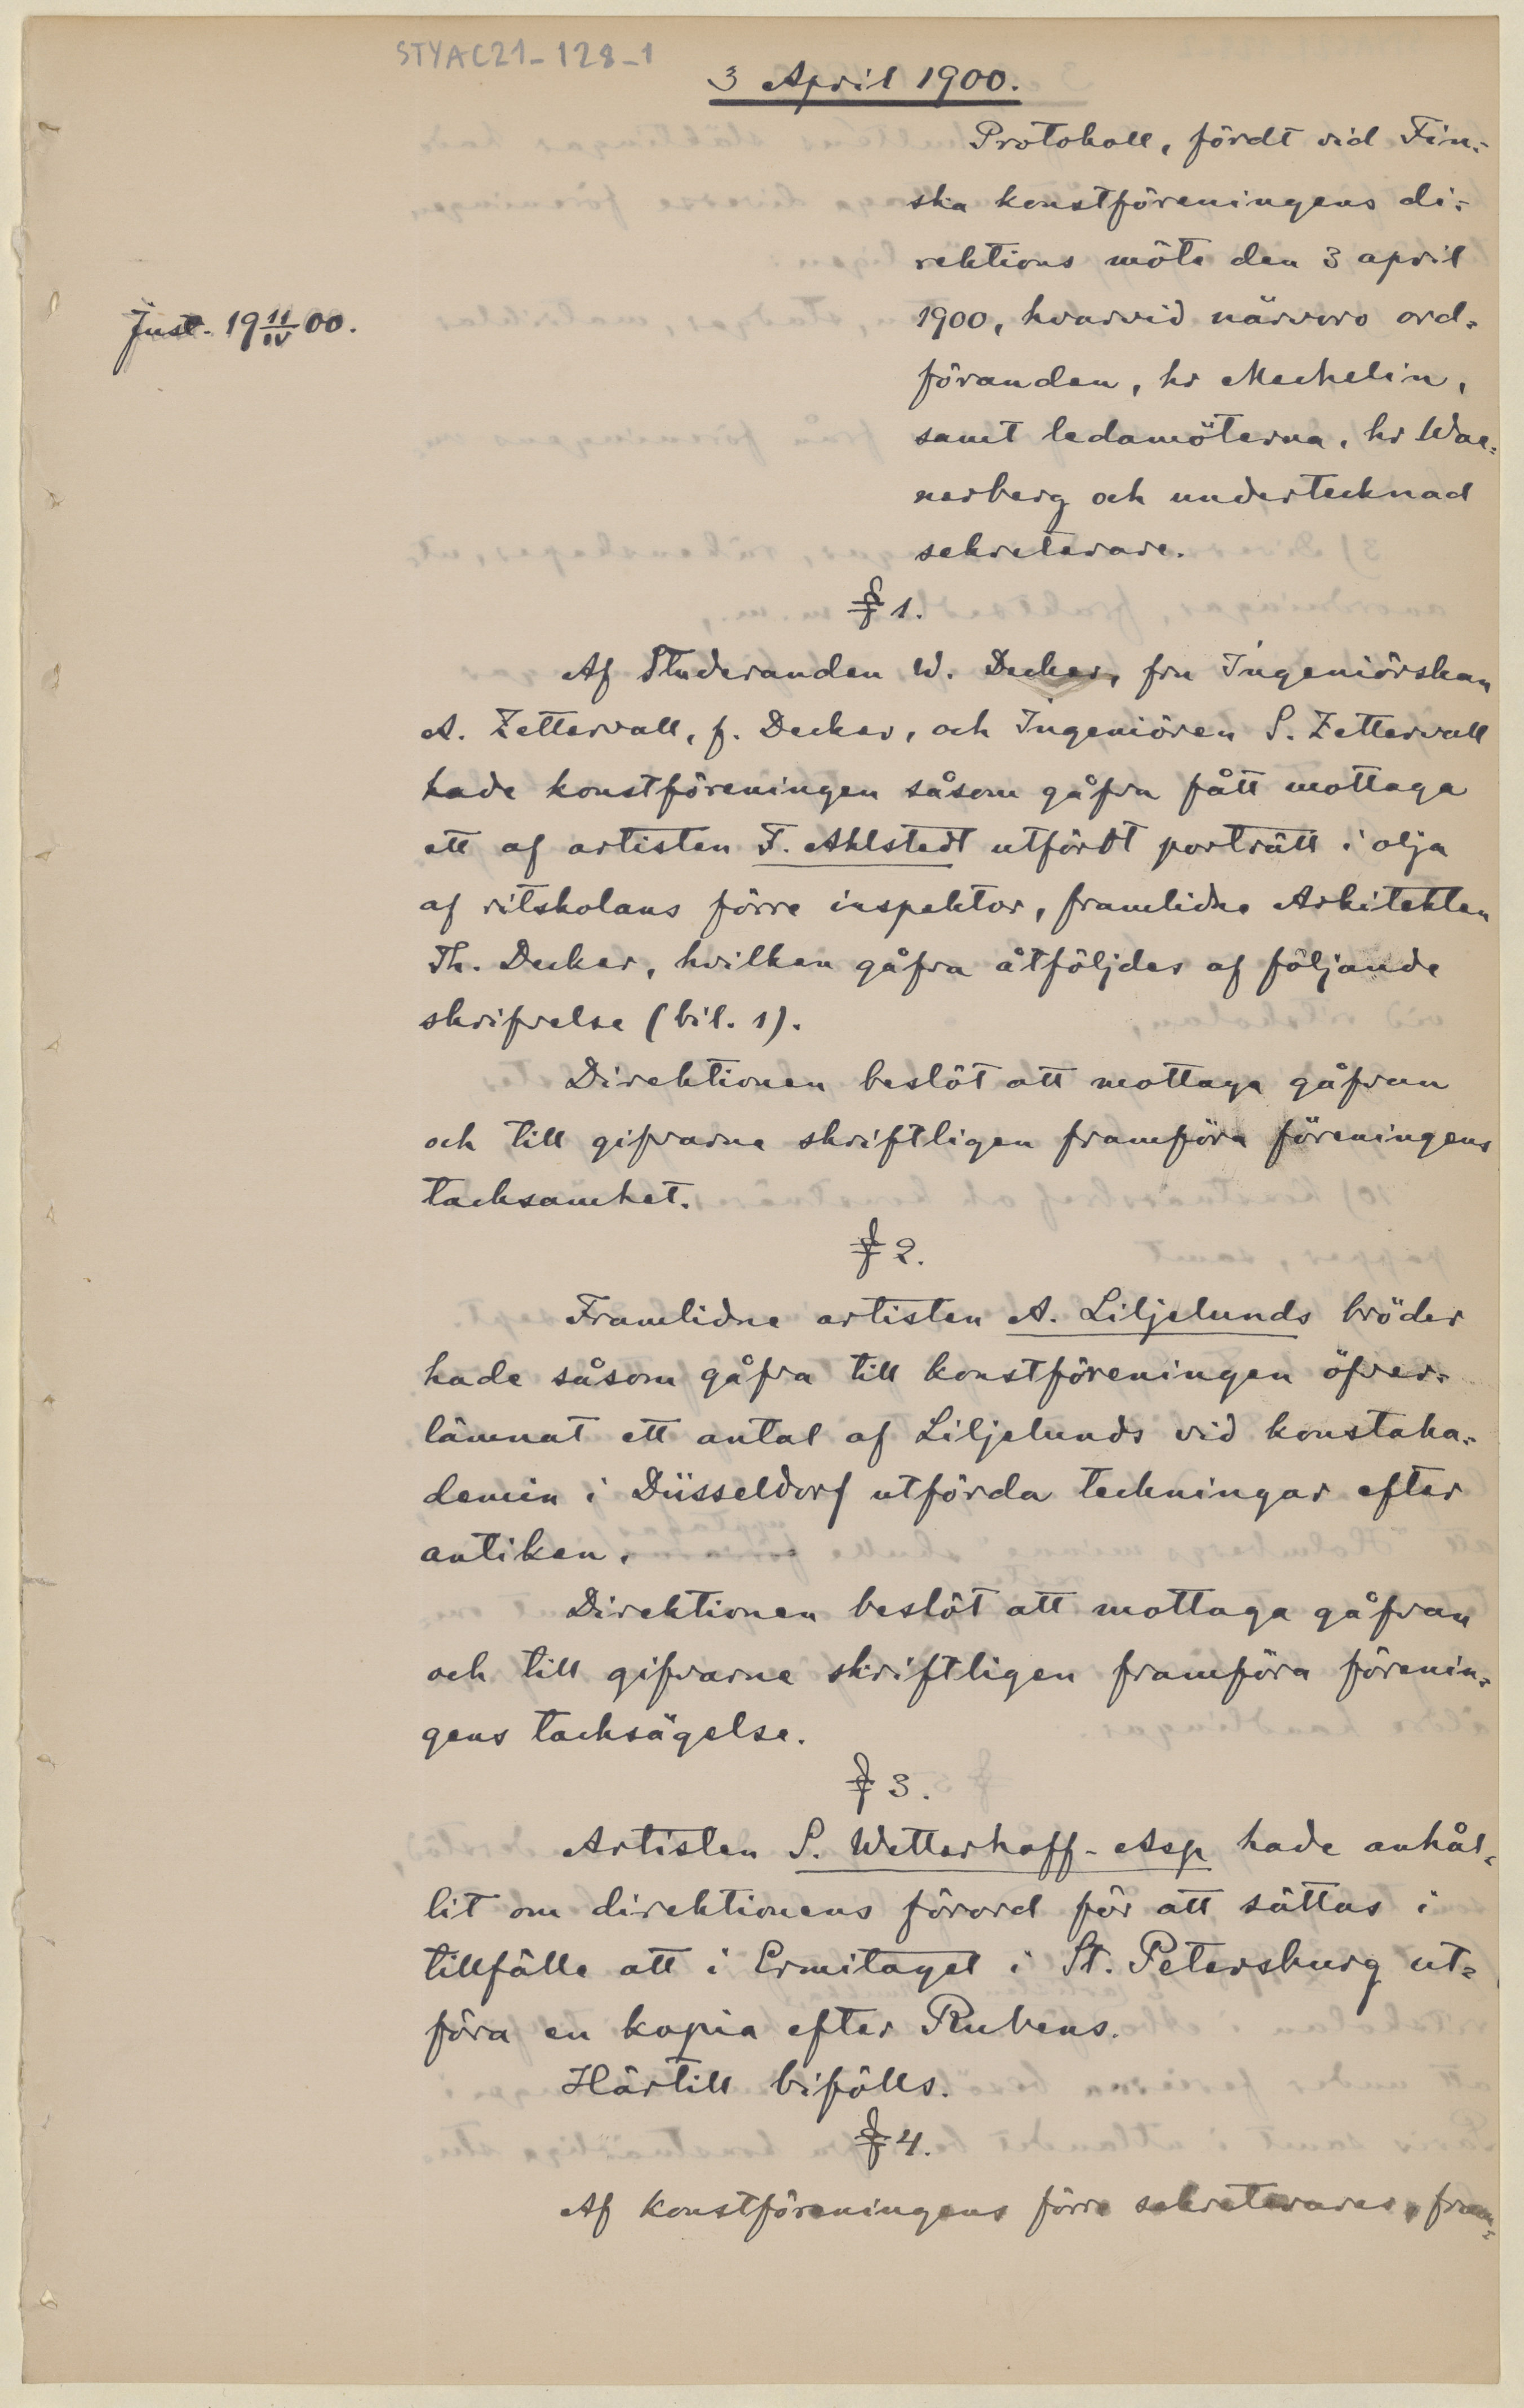 STYAC21-128-1
3 April 1900.
Protokoll, fördt vid Fin-
ska konstföreningens di-
rektions möte den 3 april
Just. 19 11/IV 00.
1900, hvarvid närvoro ord-
föranden, hr Mechelin,
samt ledamöterna, hr Wae-
nerberg och undertecknad
sekreterare.
§ 1.
Af Studeranden W. Decker, fru Ingeniörskan
A. Zettervall, f. Decker, och Ingeniören S. Zettervall
hade konstföreningen såsom gåfva fått mottaga
ett af artisten F. Ahlstedt utfördt porträtt i olja
af ritskolans förre inspektor, framlidne Arkitekten
Th. Decker, hvilken gåfva åtföljdes af följande
skrifvelse (bil. 1).
Direktionen beslöt att mottaga gåfvan
och till gifvarne skriftligen framföra föreningens
tacksamhet.
§ 2.
Framlidne artisten A. Liljelunds bröder
hade såsom gåfva till konstföreningen öfver-
lämnat ett antal af Liljelunds vid konstaka-
demin i Düsseldorf utförda teckningar efter
antiken.
Direktionen beslöt att mottaga gåfvan
och till gifvarne skriftligen framföra förenin-
gens tacksägelse.
§ 3.
Artisten S. Wetterhoff-Asp hade anhål-
lit om direktionens förord för att sättas i
tillfälle att i Ermitaget i St. Petersburg ut-
föra en kopia efter Rubens.
Härtill bifölls.
§ 4.
Af Konstföreningens förre sekreterares, fram-